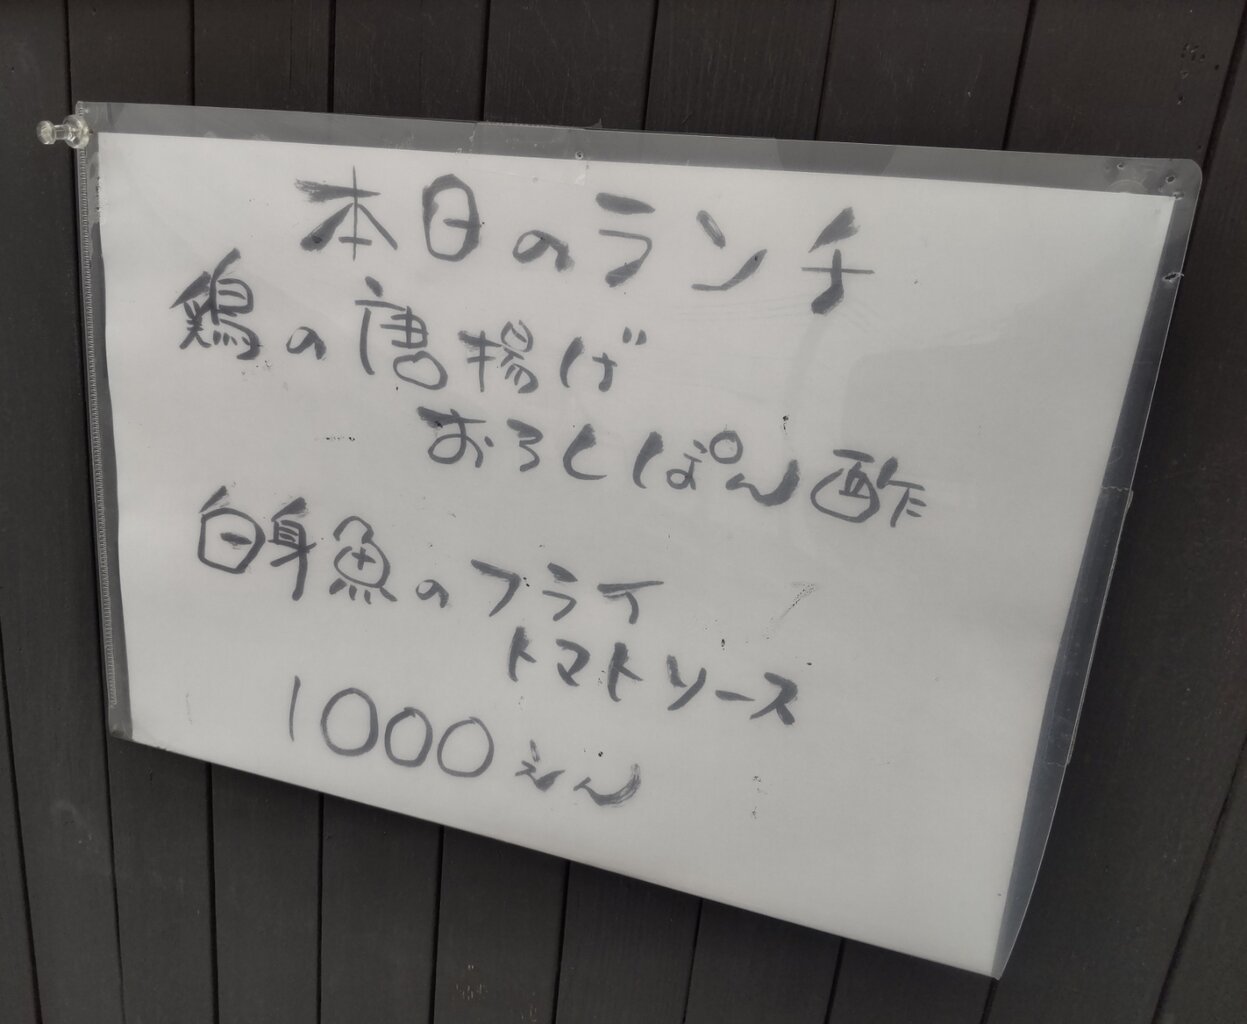 本日のランチ
鶏の唐揚げ
おろしぽん酢
白身魚のフライ
トマトソース
1000えん